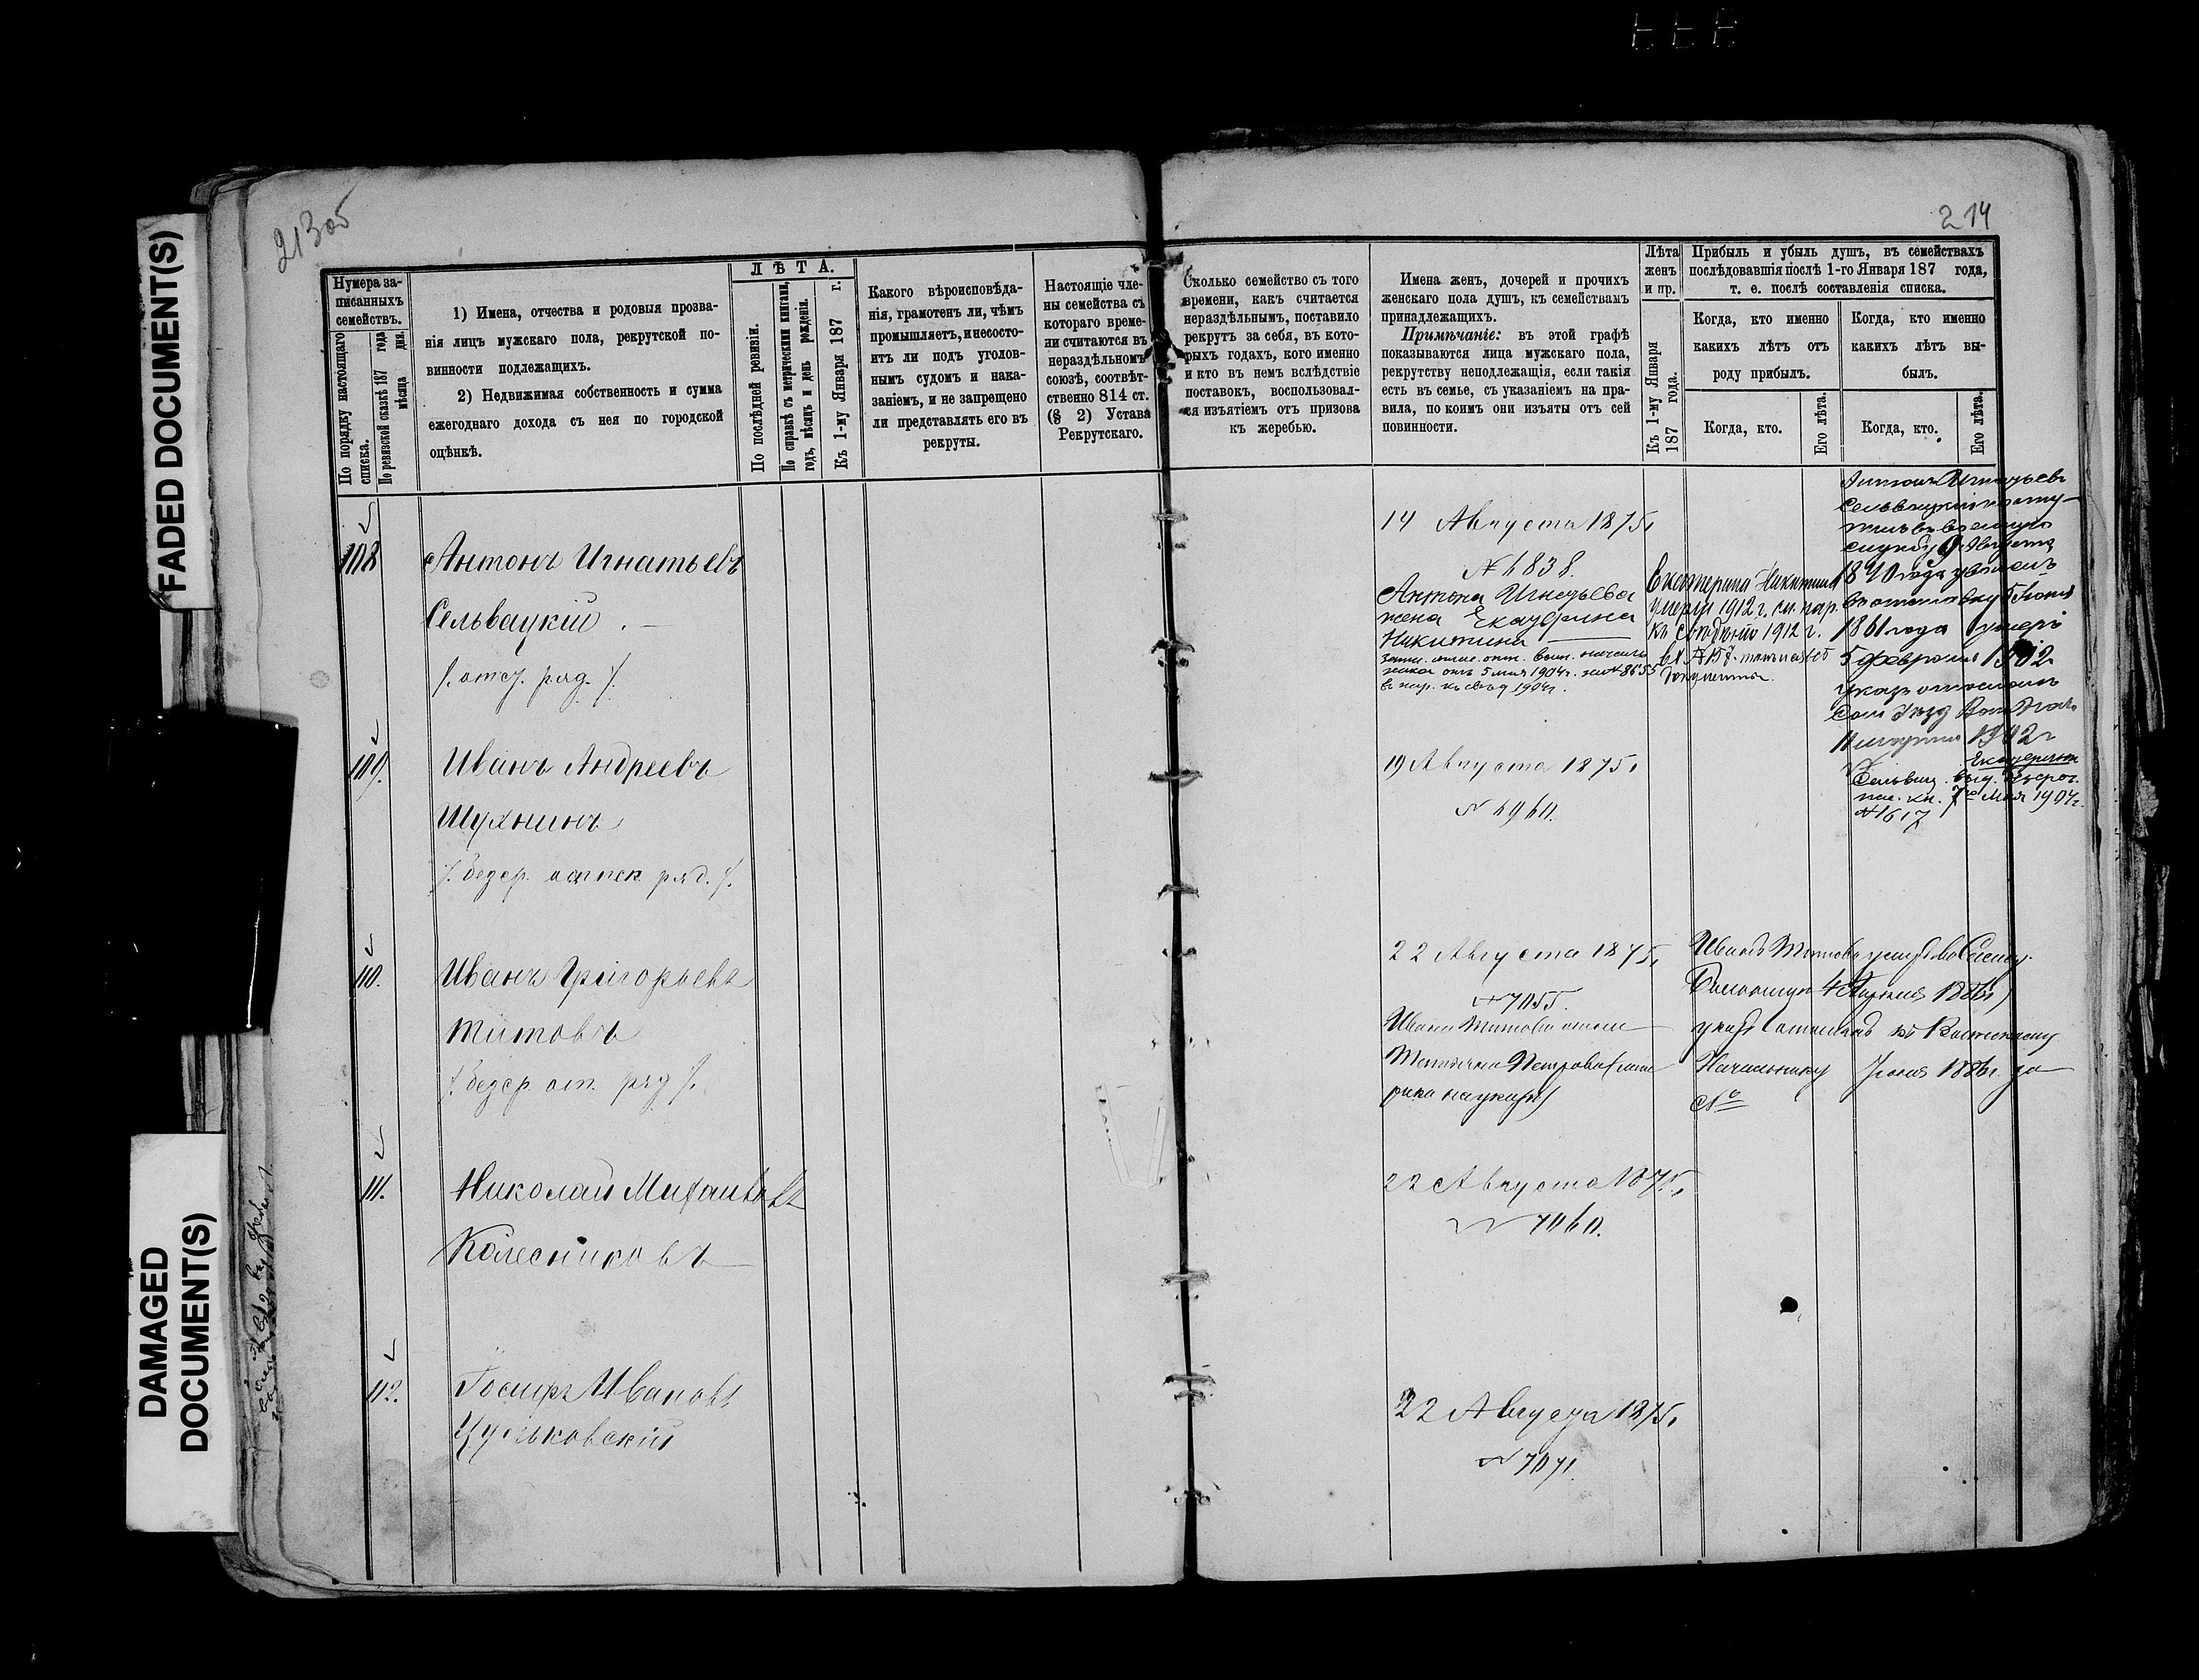 FADED DOCUMENT(S)
DAMAGED
DOCUMENT(S)
213об
214
Нумера за-
писанныхъ
семействъ.
По порядку настоящаго
списка.
По ревизской сказкѣ 187 года
мѣсяца дня.
1) Имена, отчества и родовыя прозва-
нія лицъ мужскаго пола, рекрутской по-
винности подлежащихъ.
2) Недвижимая собственность и сумма
ежегоднаго дохода съ нея по городской
оцѣнкѣ.
ЛѢТА.
По послѣдней ревизіи.
По справкѣ съ метрическими книгами,
годъ, мѣсяцъ и день рожденія.
Къ 1-му Января 187 г.
Какого вѣроисповѣда-
нія, грамотенъ ли, чѣмъ
промышляетъ, и несосто-
итъ ли подъ уголов-
нымъ судомъ и нака-
заніемъ, и не запрещено
ли представлять его въ
рекруты.
Настоящіе чле-
ны семейства съ
котораго време-
ни считаются въ
нераздѣльномъ
союзѣ, соотвѣт-
ственно 814 ст.
(§ 2) Устава
Рекрутскаго.
Сколько семейство съ того
времени, какъ считается
нераздѣльнымъ, поставило
рекрутъ за себя, въ кото-
рыхъ годахъ, кого именно
и кто въ немъ вслѣдствіе
поставокъ, воспользовал-
ся изъятіемъ отъ призова
къ жеребью.
Имена женъ, дочерей и прочихъ
женскаго пола душъ, къ семействамъ
принадлежащихъ.
Примѣчаніе: въ этой графѣ
показываются лица мужскаго пола,
рекрутству неподлежащія, если такія
есть въ семье, съ указаніемъ на пра-
вила, по коимъ они изъяты отъ сей
повинности.
Лѣта
женъ
и пр.
Къ 1-му Января
187 года.
Прибыль и убыль душъ, въ семействахъ
послѣдовавшія послѣ 1-го Января 187 года,
т. е. послѣ составленія списка.
Когда, кто именно
какихъ лѣтъ отъ
роду прибылъ.
Когда, кто именно
какихъ лѣтъ вы-
былъ.
Когда, кто.
Его лѣта.
Когда, кто.
Его лѣта.
108
Антонъ Игнатьевъ
Сельвацкій
/. отс. ряд. /.
14 Августа 1875
№ 6838.
Антона Игнатьева
жена Екатерина
Никитина
отъ 5 мая 1904 г. за № 8655
1904 г.
Екатерина Никитина
умерла 1912 г. см. пар.
къ свѣдѣнію 1912 г.
документы.
Антонъ Игнатьевъ
Сельвацкій посту-
службу 9 Августа
1840 года уволенъ
въ отставку 5 Іюня
1861 года умеръ
5 февраля 1902
указъ отосланъ
1902 г
Екатерина
Сельвац. выд.
7го Мая 1904 г.
№ 617
109.
Иванъ Андреевъ
Шухнинъ
/. безср. отпск ряд. /.
19 Августа 1875
№ 6960.
110.
Иванъ Григорьевъ
Титовъ
/. безср. от. ряд /.
22 Августа 1875
№ 7055.
Ивана Титова
Петрова
Иванъ Титовъ
4 Апрѣля 1886 г
указъ отосланъ къ Воинскому
Начальнику Іюня 1886 г. за
№
111.
Николай Михайловъ
Колесниковъ
22 Августа 1875
№ 7060.
112.
Іосифъ Ивановъ
22 Августа 1875
№ 7071.